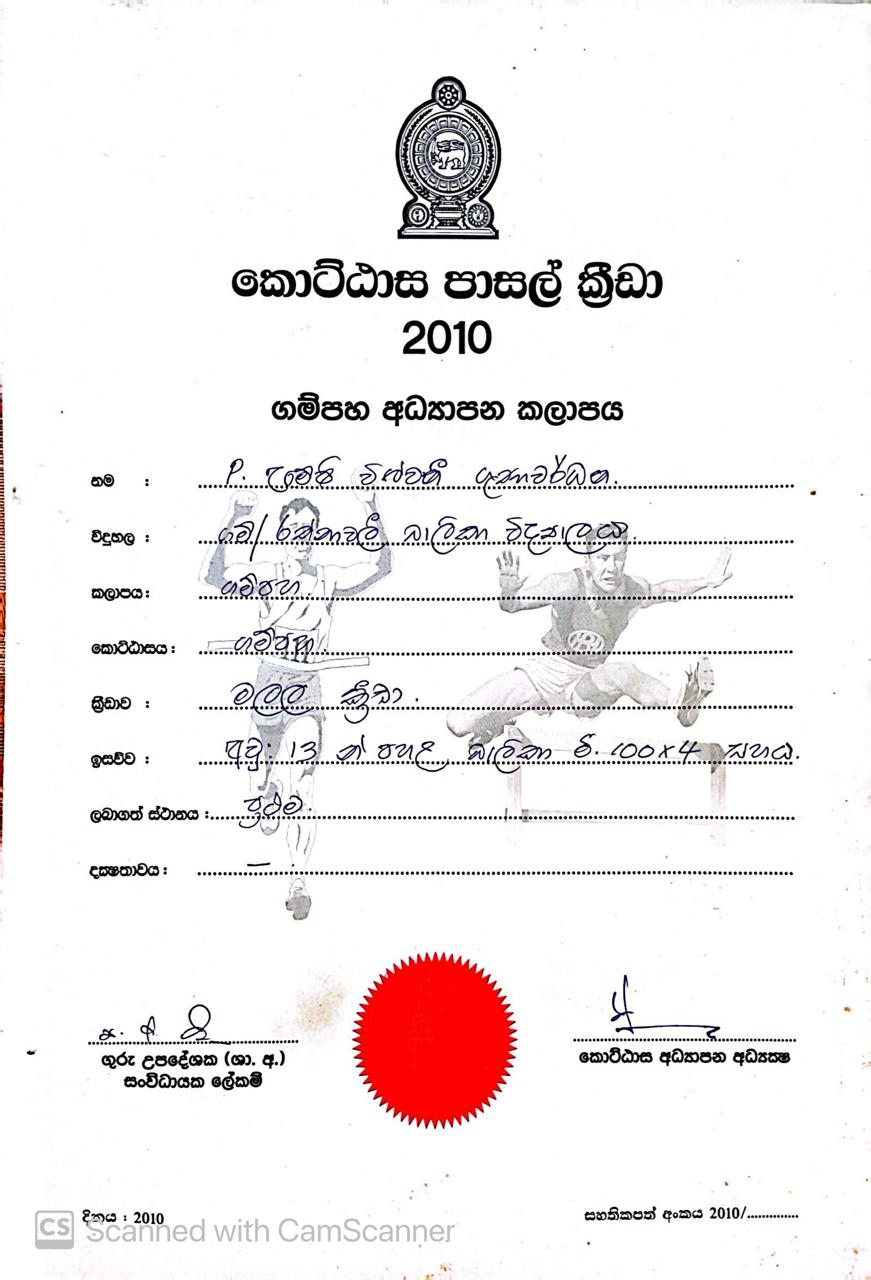 කොට්ඨාස පාසල් ක්‍රීඩා
2010
ගම්පහ අධ්‍යාපන කලාපය
නම : P. උමේෂි විශ්වනී ගුණවර්ධන.
විදුහල : ගම්/ රත්නාවලී බාලිකා විද්‍යාලය.
කලාපය : ගම්පහ.
කොට්ඨාසය : ගම්පහ.
ක්‍රීඩාව : මලල ක්‍රීඩා.
ඉසව්ව : අවු: 13 න් පහළ බාලිකා මී. 100x4 සහාය.
ලබාගත් ස්ථානය : ප්‍රථම.
දක්‍ෂතාවය : –
ගුරු උපදේශක (ශා. අ.)
සංවිධායක ලේකම්
කොට්ඨාස අධ්‍යාපන අධ්‍යක්‍ෂ
දිනය : 2010
සහතිකපත් අංකය 2010/..............
CS Scanned with CamScanner